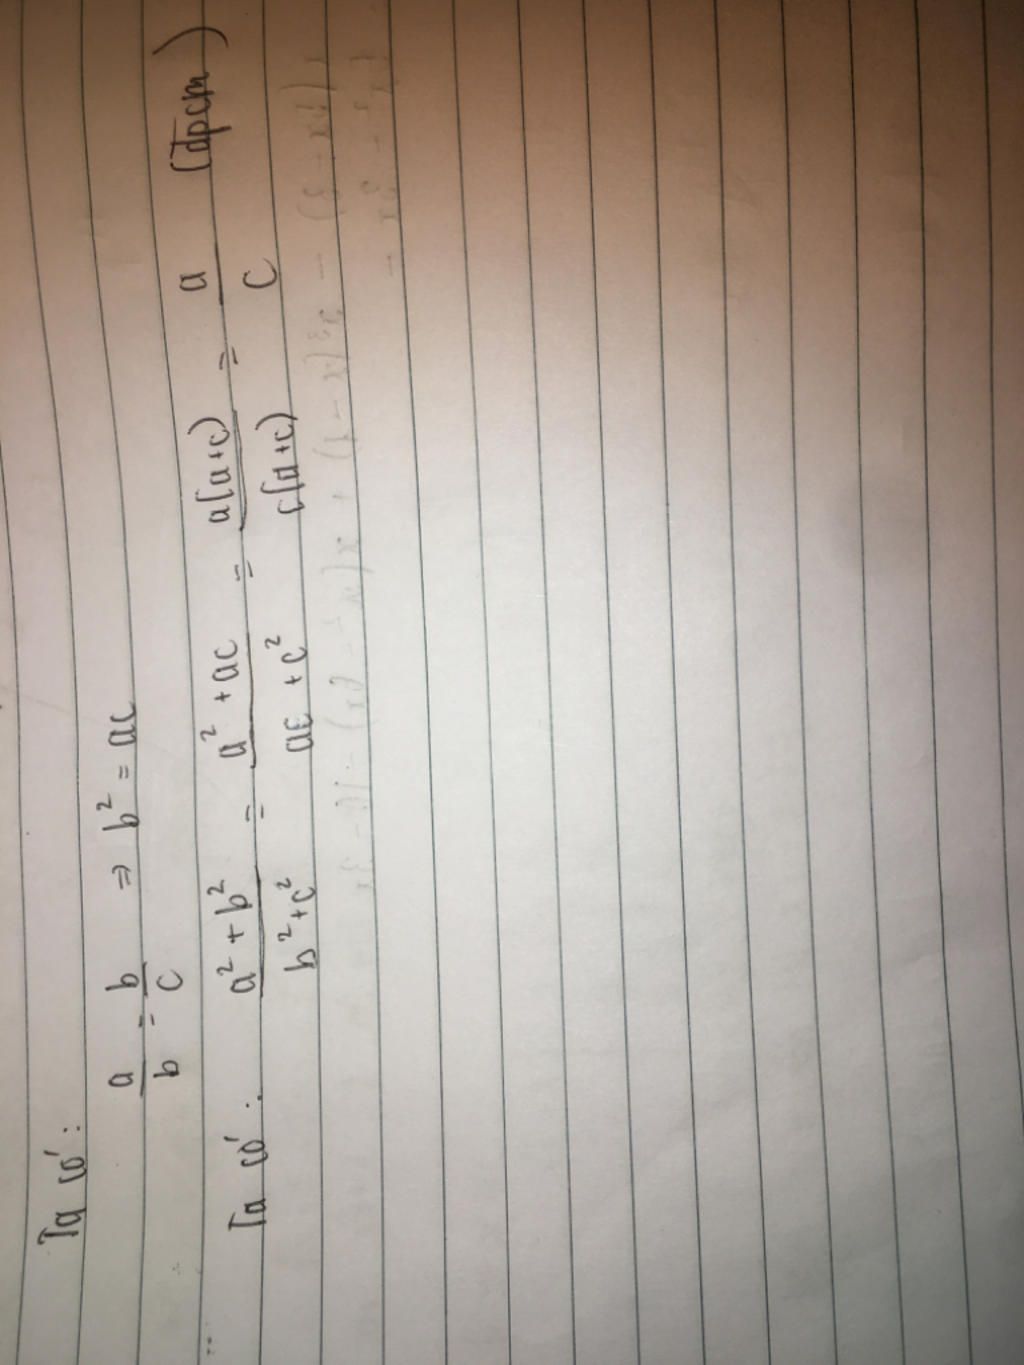 Ta có:
a/b = b/c ⇒ b² = ac
Ta có: (a² + b²)/(b² + c²) = (a² + ac)/(ac + c²) = a(a+c)/c(a+c) = a/c (đpcm)